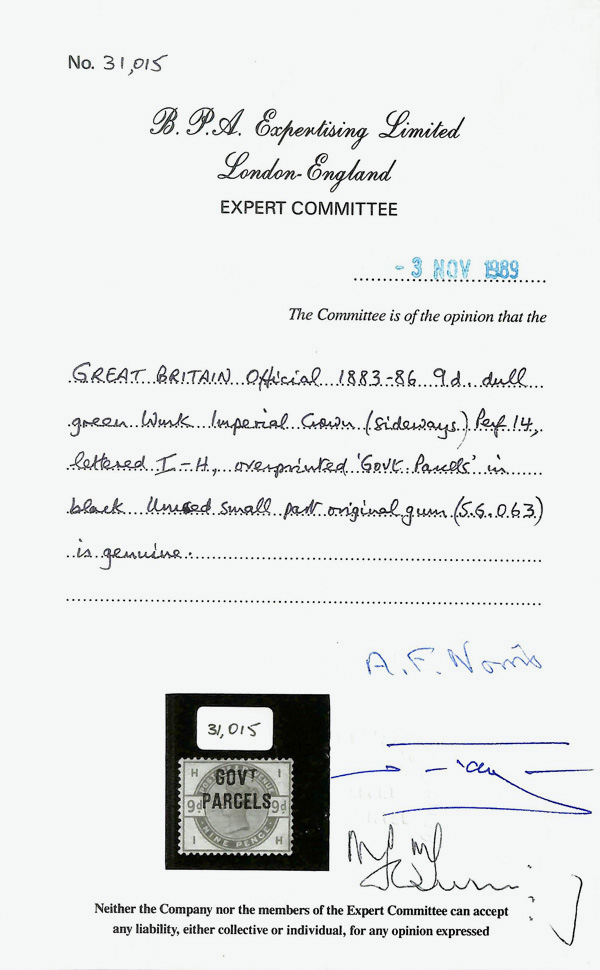 No. 31,015
B.P.A. Expertising Limited
London-England
EXPERT COMMITTEE
- 3 NOV 1989
The Committee is of the opinion that the
GREAT BRITAIN Official 1883-86 9d. dull
green Wmk Imperial Crown (sideways) Perf 14,
lettered I-H, overprinted 'Govt Parcels' in
black Unused small part original gum (S.G.063)
is genuine.
A. F. Norris
31,015
H I
GOVT
PARCELS
9d. 9d.
NINE PENCE
I H
Neither the Company nor the members of the Expert Committee can accept
any liability, either collective or individual, for any opinion expressed